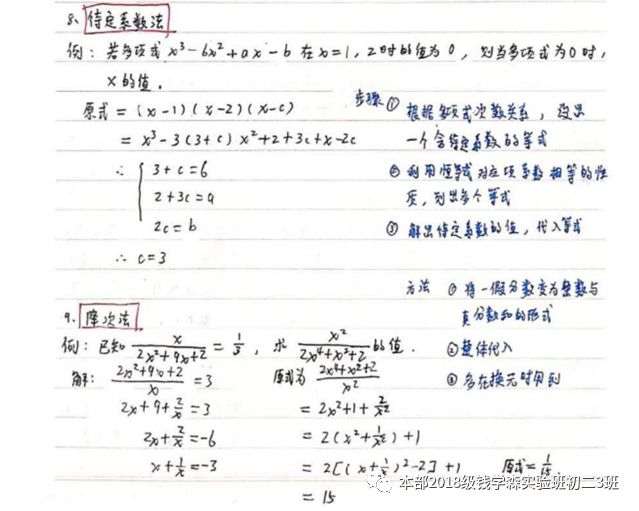 8、待定系数法
例：若多项式 x³-6x²+ax-b 在 x=1，2时的值为0，则当多项式为0时，
x的值．
原式=(x-1)(x-2)(x-c)
=x³-3(3+c)x²+2+3c+x-2c
∴ { 3+c=6
2+3c=a
2c=b
∴ c=3
步骤 ① 根据多项式次数关系，设出
一个含待定系数的等式
② 利用恒等式对应项系数相等的性
质，列出多个等式
③ 解出待定系数的值，代入等式
9、降次法
例：已知 x/(2x²+9x+2) = 1/3，求 x²/(2x⁴+x²+2) 的值．
解： (2x²+9x+2)/x =3
2x+9+2/x=3
2x+2/x=-6
x+1/x=-3
原式为 (2x⁴+x²+2)/x²
=2x²+1+2/x²
=2(x²+1/x²)+1
=2[(x+1/x)²-2]+1
=15
原式=1/15
方法 ① 将一假分数变为整数与
真分数和的形式
② 整体代入
③ 多在换元时用到
本部2018级钱学森实验班初二3班